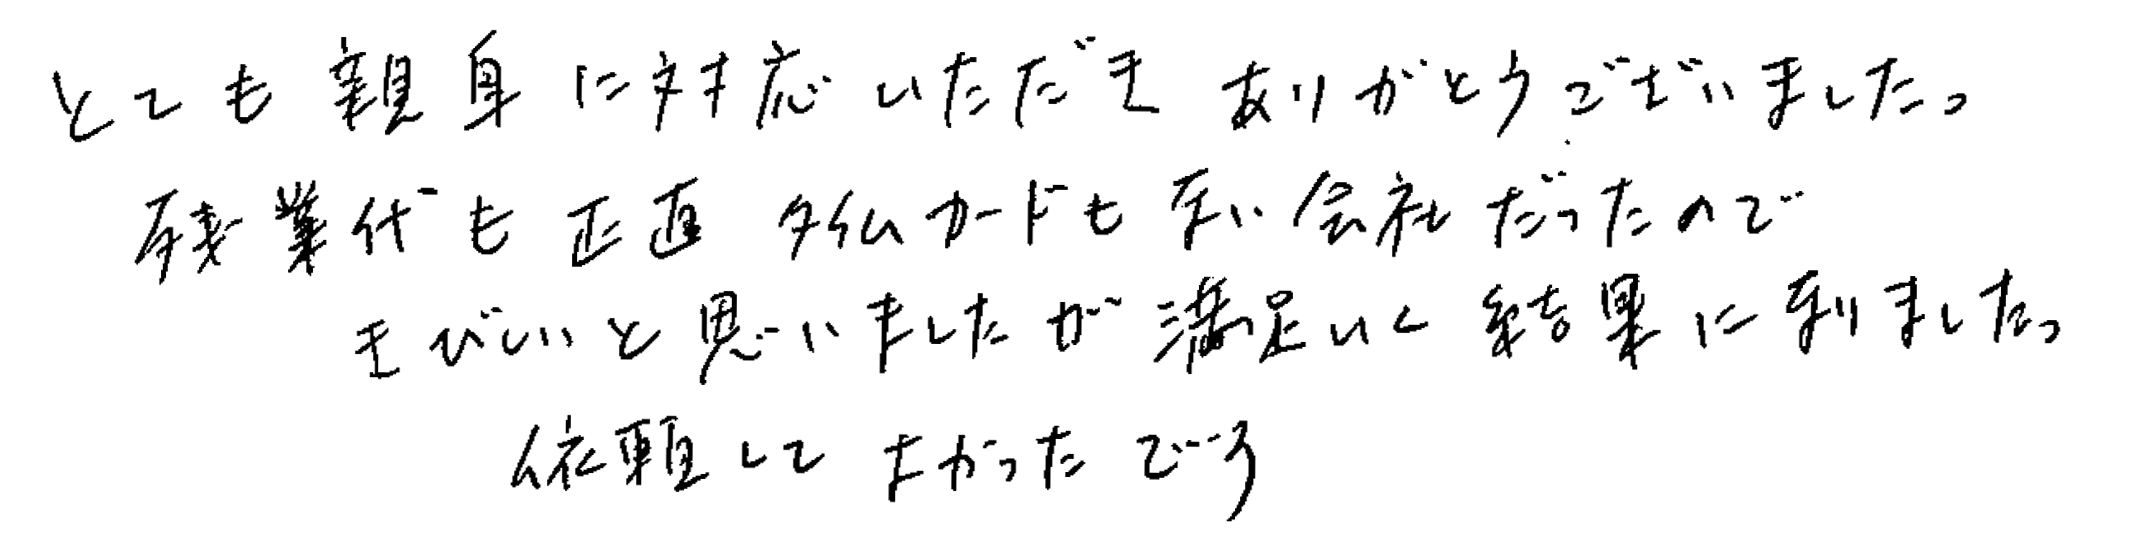 とても親身に対応いただき ありがとうございました。
残業代も正直 タイムカードもない会社だったので
きびしいと思いましたが 満足いく結果になりました。
依頼してよかったです